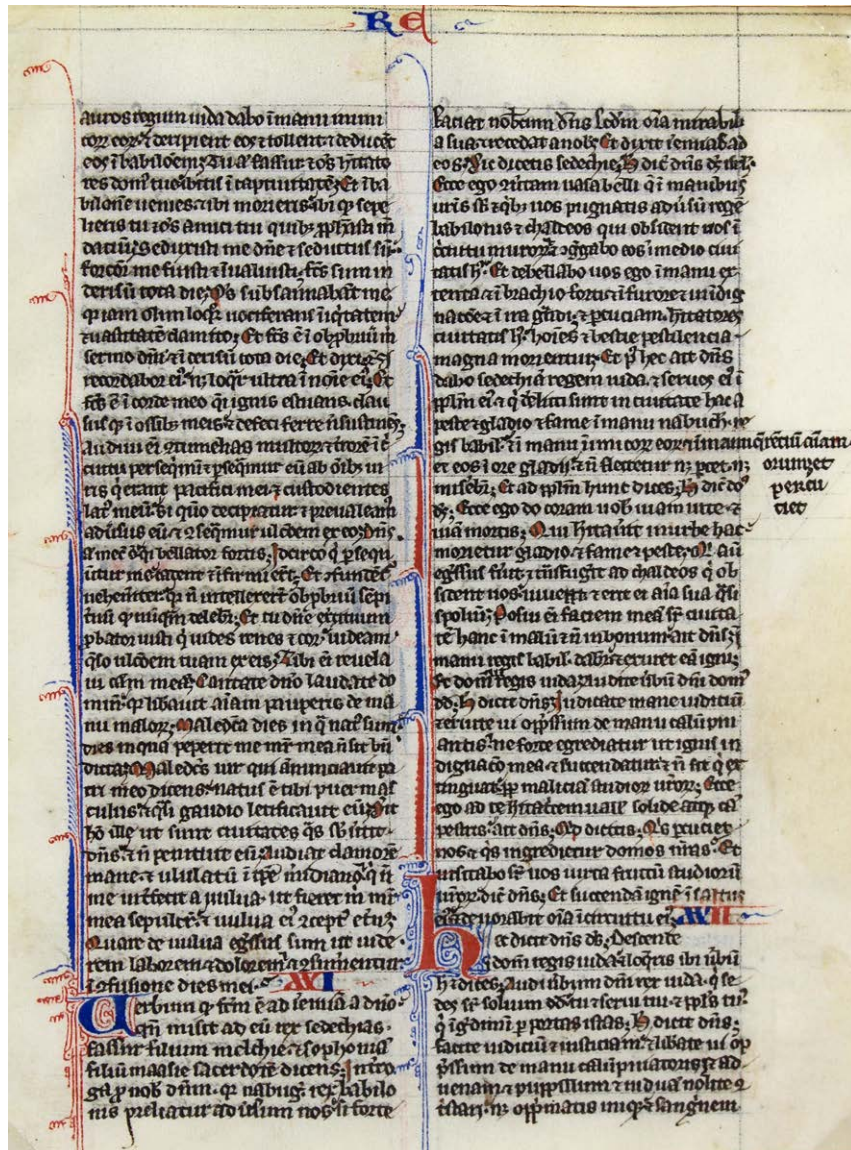 RE
auros regum iuda dabo ī manu inimi
coꝝ eoꝝ ⁊ deripient eos ⁊ tollent ⁊ deducēt
eos ī babilōem
res dom' tue ībitis ī captiuitatē; Et ī ba
bilonē uenies ⁊ ibi morieris ibi q; sepe
lieris tu ⁊ os amici tui quib;
daciū; Seduxisti me dn̄e ⁊ seductus sū
fortior me fuisti ⁊ īualuisti; fcs sum in
derisū tota die; Os subsannabāt me
quiam olim loq̄r uociferans īiq̄tatem
⁊ uastitatē clamito; Et fcs ē
sermo dn̄i ⁊ ī derisū tota die; Et dixi
recordabor ei' n; loq̄r ultra ī noīe ei'; Et
fcs ē ī corde meo q̄i ignis estuans. clau
sus q; ī ossib; meis ⁊ defeci ferre n̄ sustinēs
Audiui ei ꝯtumelias multoꝝ ⁊ tīrorē ī c̄
cuitu perseq̄mī ⁊ ꝑseq̄mur eū ab oīb; ui
ris q̄ erant pacifici mei ⁊ custodientes
lat' meū; Si quo decipiatur ⁊ preualeam'
aduīsus eū ⁊ ꝯseq̄mur ulcōem ex eo; Dn̄s
a' mec' ē q̄i bellator fortis; Idcirco q̄ ꝑsequ
ūtur me cadent ⁊ īfirmi erūt;
uehem̄ter q̄r n̄ intellexerūt obp̄briū sēpi
t'nū q̄ nūq̄m delebīr; Et tu dn̄e exercituum
ꝓbator iusti q̄ uides renes ⁊ cor uideam
q̄so ulcōem tuam ex eis; Tibi ei reuela
ui cām meā; Cantate dn̄o laudate do
min̄. q̄ libauit aīam pauperis de ma
nu maloꝝ; Maledc̄a dies in q̄ nat' sum
dies in qua peperit me mr̄ mea n̄ sit bn̄
dicta; Maledcs uir qui annunciauit pa
tri meo dicens. natus ē tibi puer mas
culus ⁊ q̄si gaudio letificauit eū; Sit
hō ille ut sunt ciuitates q̄s sb'uertit
dn̄s. ⁊ n̄ penituit eū; Audiat clamorē
mane ⁊ ululatū ī tp̄e m̄idiano; q̄ n̄
me int'fecit a uulua. ut fieret m̄ mr̄
mea sepulcr̄ ⁊ uulua ei' ꝯcept' et'nꝰ
Quare de uulua eḡssus sum ut uide
rem laborem ⁊ dolorem ⁊ ꝯsumerentur
ī ꝯfusione dies mei. XXI
Uerbum q; fcm̄ ē ad ieremiā a dn̄o
q̄n misit ad eū rex sedechias.
fassur filium melchie ⁊ sophoniā
filiū maasie sacerdotē dicens; Intro
ga ꝓ nob' dn̄m. q̄r nabug'. rex babilo
nis preliatur aduīsum nos. si forte
faciat nobiscum dn̄s scdm oīa mirabil
a sua ⁊ recedat a nob; Et dixit ieremias ad
eos; Sic dicetis sedechie; H̄ dic̄ dn̄s ds isrl.
Ecce ego ꝯūtam uasa belli q̄ ī manib;
ur̄is st̄ ⁊ q̄b; uos pugnatis aduīsū regē
babilonis ⁊ chaldeos qui obsident uos ī
c̄cuitu muroꝝ ⁊ ꝯḡgabo eos ī medio ciui
tatis h'. Et debellabo uos ego ī manu ex
tenta ⁊ ī brachio forti ⁊ ī furore ⁊ in īdig
nacōe ⁊ ī ira
ciuitatis h'. hoīes ⁊ bestie pestilencia
magna morientur. Et p' hec ait dn̄s
dabo sedechiā regem iuda ⁊ seruos ei' ⁊
pplm̄ ei' ⁊ q̄ dēlicti sunt in ciuitate hac a
peste ⁊ gladio ⁊ fame ī manu nabuch'. re
gis babil'. ⁊ ī manu inimicoꝝ eoꝝ ⁊ ī manu q̄rentiū aīam
eoꝝ ⁊ ꝑcutiet
et eos ī ore gladii ⁊ n̄ flectetur n; pcet n;
misēbr̄; Et ad pplm̄ hunc dices; H̄ dic̄ dn̄s
Ecce ego do coram uob' uiam uite ⁊
uiam mortis; Qui hītau̇it in urbe hac
morietur gladio ⁊ fame ⁊ peste; Q' aū
eḡssus fūit ⁊ t̄nsfuḡit ad chaldeos q̄ ob
sident nos uiuet ⁊ erit ei aīa sua q̄si
spoliū; Posui ei faciem meā sr̄ ciuita
tē hanc ī malū ⁊ n̄ in bonum ait dn̄s
manu regis babil'. dabīr ⁊ exuret eā igni;
Et domi regis iuda; Audite ūbum dn̄i dom'
dd; H̄ dicit dn̄s; Iudicate mane iudiciū
⁊ eruite ui opp̄ssum de manu calūpni
antis. ne forte egrediatur ut ignis in
dignacō mea ⁊ succendatur ⁊ n̄ sit q̄ ex
tinguat ꝓp' maliciā studioꝝ ur̄oꝝ; Ecce
ego ad te hītatricem uall' solide atq; cā
pestris. ait dn̄s; Qi dicitis; Q's ꝑcutiet
nos ⁊ q̄s ingredietur domos nr̄as. Et
uisitabo sr̄ uos iuxta fructū studiorū
ur̄oꝝ dic̄ dn̄s; Et succendā ignē ī saltu
ei' ⁊ deuorabit oīa ī circuitu ei'. XXII
Hec dicit dn̄s ds; Descende
ī dom̄ regis iuda ⁊ loq̄ris ibi ūbū
h' ⁊ dices; Audi ūbum dn̄i rex iuda. q̄ se
des sr̄ solium dd tu ⁊ serui tui ⁊ ppls tu'
q̄ īḡdimīi ꝑ portas istas; H̄ dicit dn̄s;
facite iudiciū ⁊ iusticiam ⁊ libate ui opꝰ
p̄ssum de manu calūpniatoris ⁊ ad
uenam ⁊ pupillum ⁊ uiduā nolite ꝯ
t'stari. n; opp̄matis inique ⁊ sangn̄em